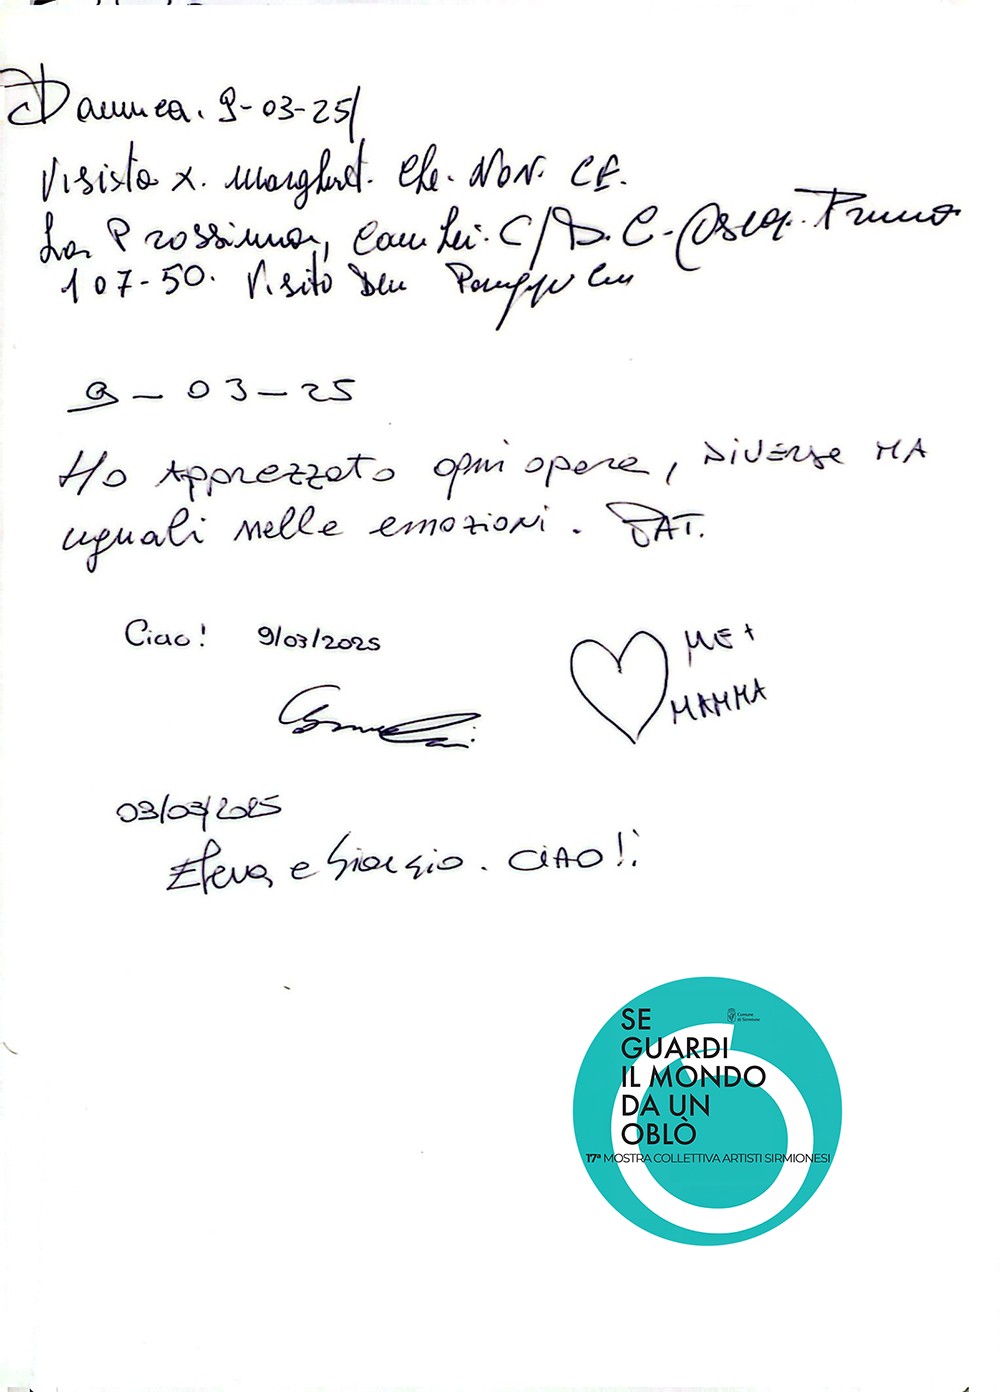 9-03-25
Visista x. Margheret. Che. NON. CE.
La Prossima, Com Lei. C/D. C. Prima
107-50. Visito
9-03-25
Ho Apprezzato ogni opera, DIVERSE MA
uguali nelle emozioni. PAT.
Ciao! 9/03/2025
ME +
MAMMA
03/03/2025
Elena e Giorgio. CIAO!!
Comune
di Sirmione
SE
GUARDI
IL MONDO
DA UN
OBLÒ
17ª MOSTRA COLLETTIVA ARTISTI SIRMIONESI